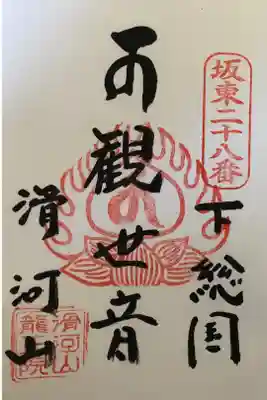 坂東二十八番
下総国
観世音
滑河山
滑河山
龍院